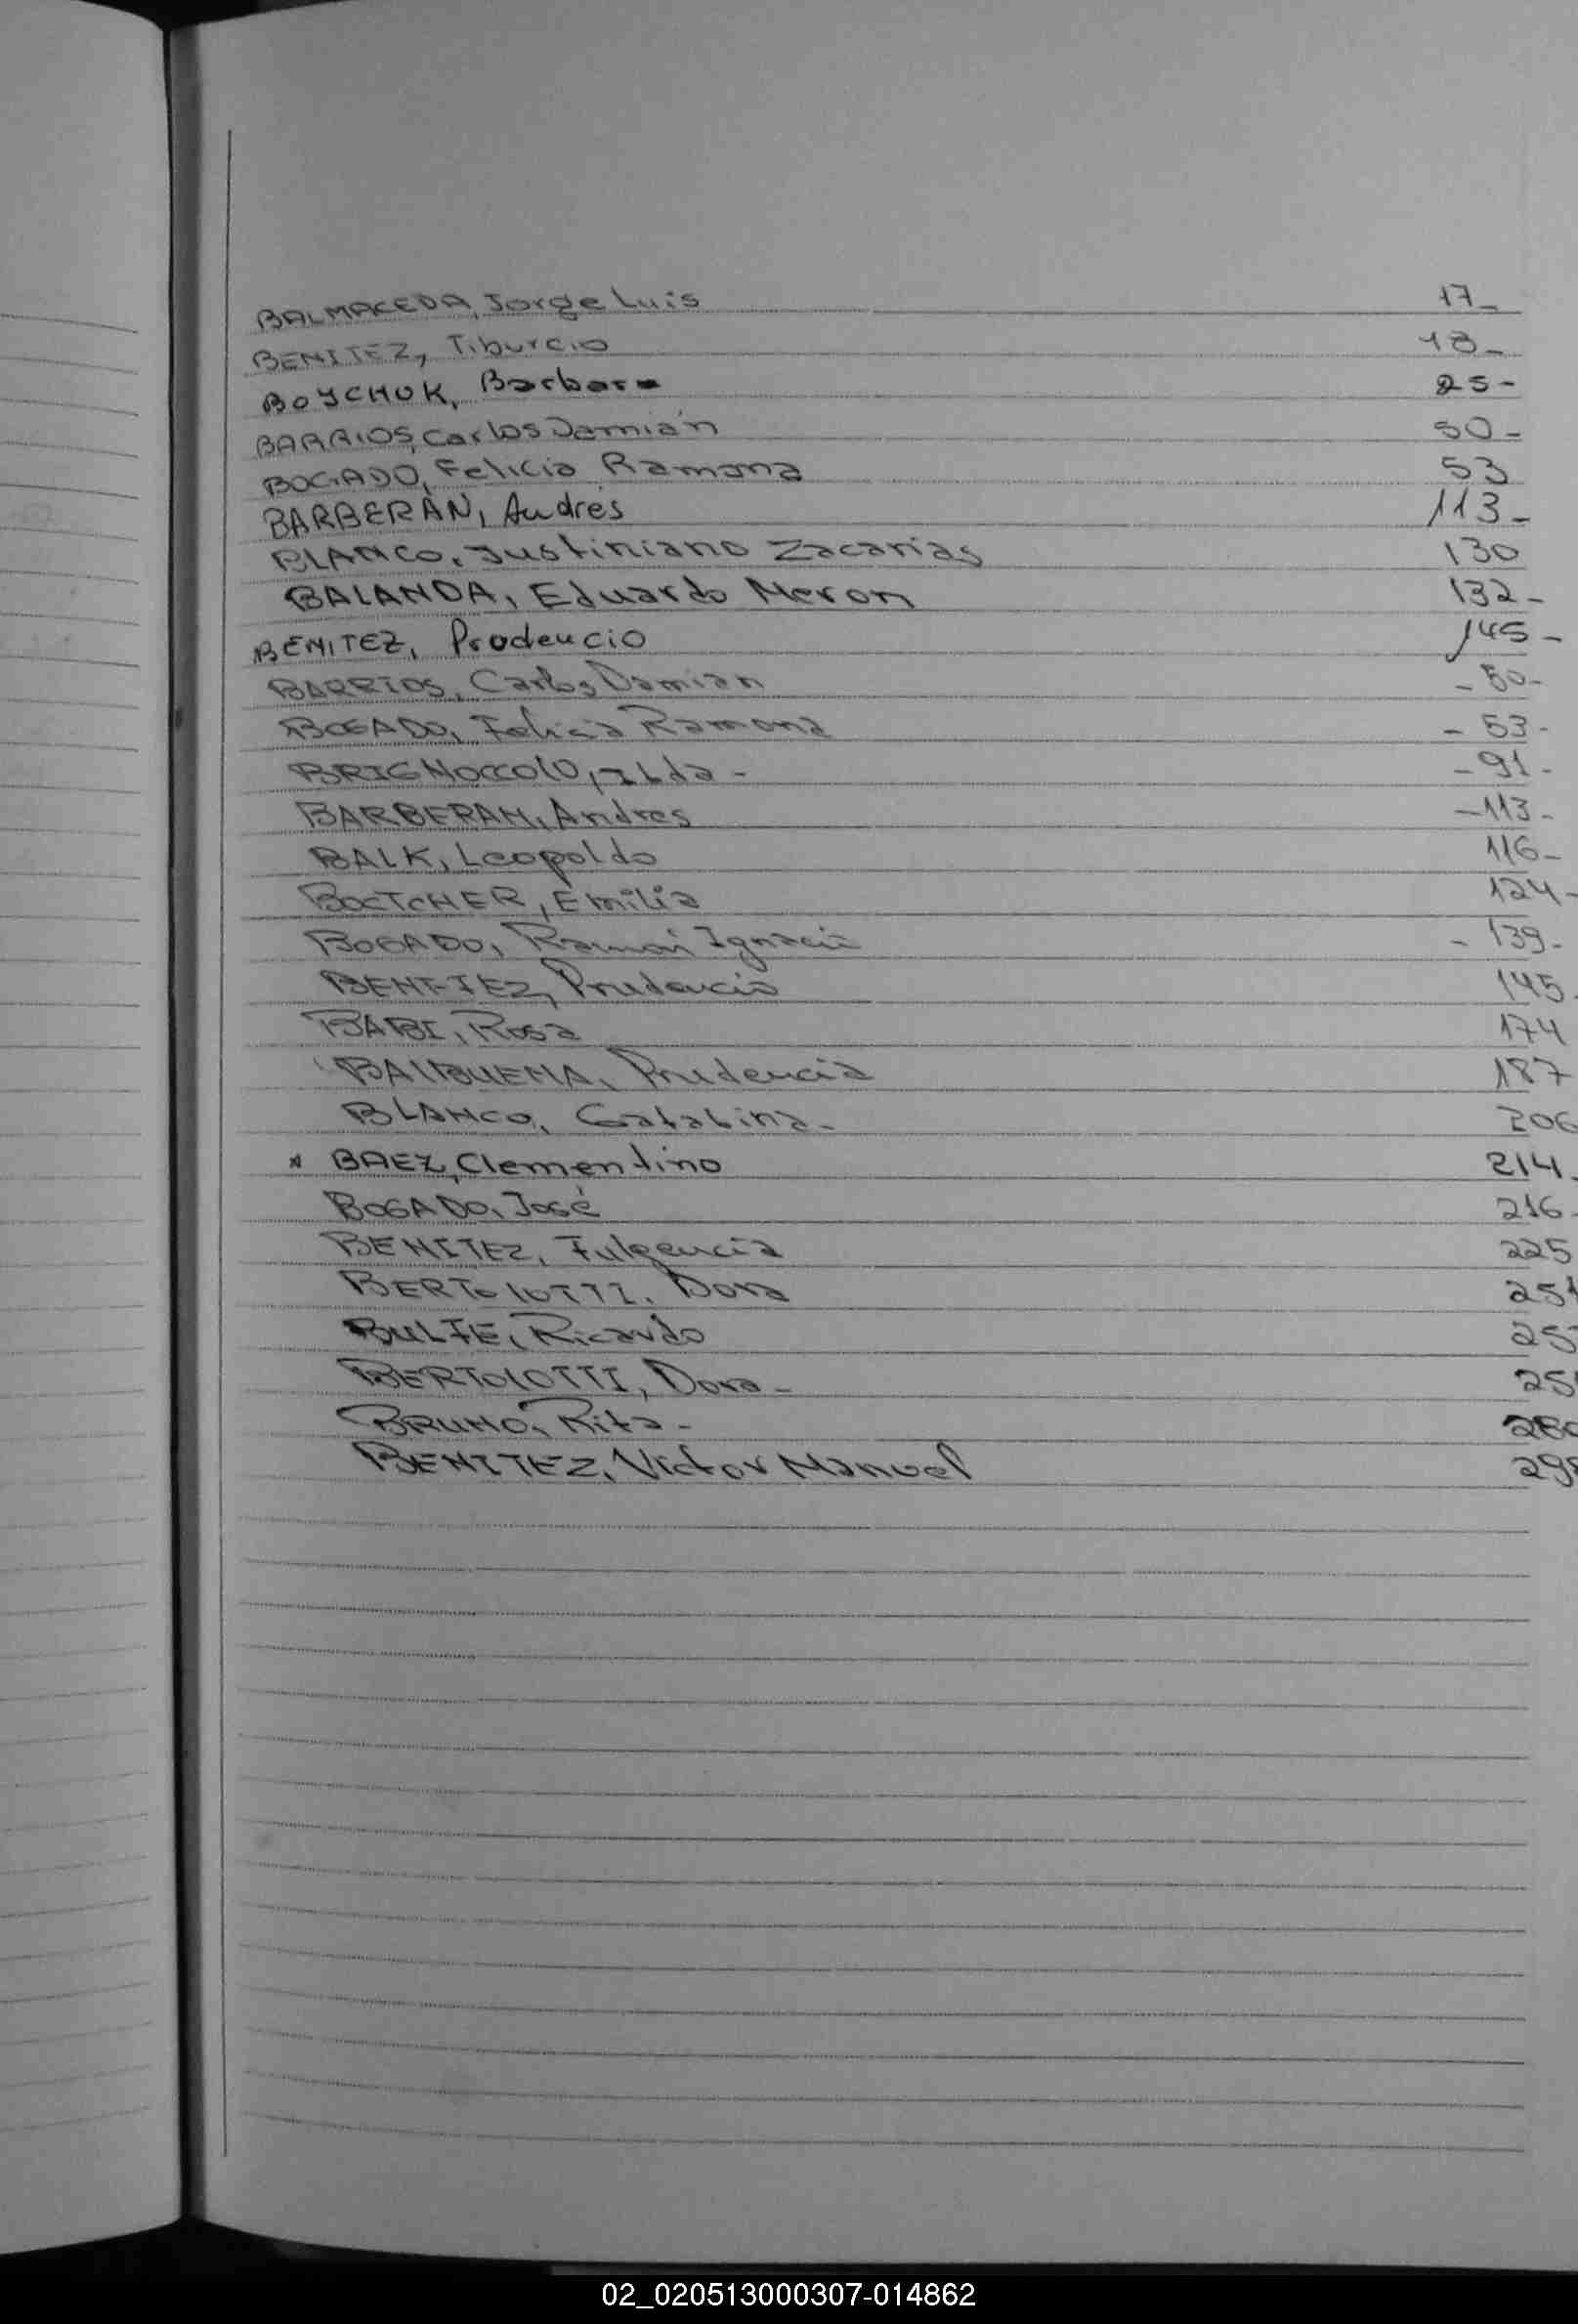 BALMACEDA, Jorge Luis 17-
BENITEZ, Tiburcio 18-
BOYCHUK, Barbara 25-
BARRIOS, Carlos Damián 50-
BOGADO, Felicia Ramona 53
BARBERÁN, Andrés 113-
BLANCO, Justiniano Zacarias 130
BALANDA, Eduardo Neron 132-
BENITEZ, Prudencio 145-
BARRIOS, Carlos Damian -50-
BOGADO, Felicia Ramona - 53-
BRIGNOCCOLO, Ilda - -91-
BARBERAN, Andres -113-
BALK, Leopoldo 116-
BOETCHER, Emilia 124-
BOGADO, Ramon Ignacio - 139-
BENITEZ, Prudencio 145-
BABI, Rosa 174
BALBUENA, Prudencia 187
BLANCO, Catalina- 206
* BAEZ, Clementino 214-
BOGADO, José 216-
BENITEZ, Fulgencia 225
BERTOLOTTI, Dora 251
Ricardo
BERTOLOTTI, Dora-
BRUNO, Rita-
BENITEZ, Victor Manuel
02_020513000307-014862